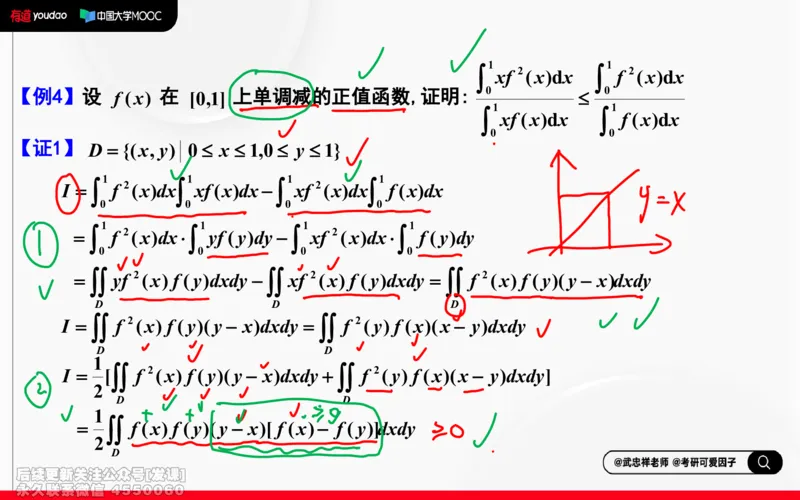 有道 youdao 中国大学MOOC
【例4】设 f(x) 在 [0,1] 上单调减的正值函数, 证明: \frac{\int_0^1 xf^2(x)dx}{\int_0^1 xf(x)dx} ≤ \frac{\int_0^1 f^2(x)dx}{\int_0^1 f(x)dx}
【证1】 D = {(x, y) | 0 ≤ x ≤ 1, 0 ≤ y ≤ 1}
I = ∫_0^1 f^2(x)dx ∫_0^1 xf(x)dx − ∫_0^1 xf^2(x)dx ∫_0^1 f(x)dx
y=x
① = ∫_0^1 f^2(x)dx · ∫_0^1 yf(y)dy − ∫_0^1 xf^2(x)dx · ∫_0^1 f(y)dy
= ∬_D yf^2(x)f(y)dxdy − ∬_D xf^2(x)f(y)dxdy = ∬_D f^2(x)f(y)(y − x)dxdy
I = ∬_D f^2(x)f(y)(y − x)dxdy = ∬_D f^2(y)f(x)(x − y)dxdy
② I = \frac{1}{2}[∬_D f^2(x)f(y)(y − x)dxdy + ∬_D f^2(y)f(x)(x − y)dxdy]
+ + ≥0
= \frac{1}{2}∬_D f(x)f(y)(y − x)[f(x) − f(y)]dxdy ≥0
@武忠祥老师 @考研可爱因子
后续更新关注公众号[发课]
永久联系微信 4550060